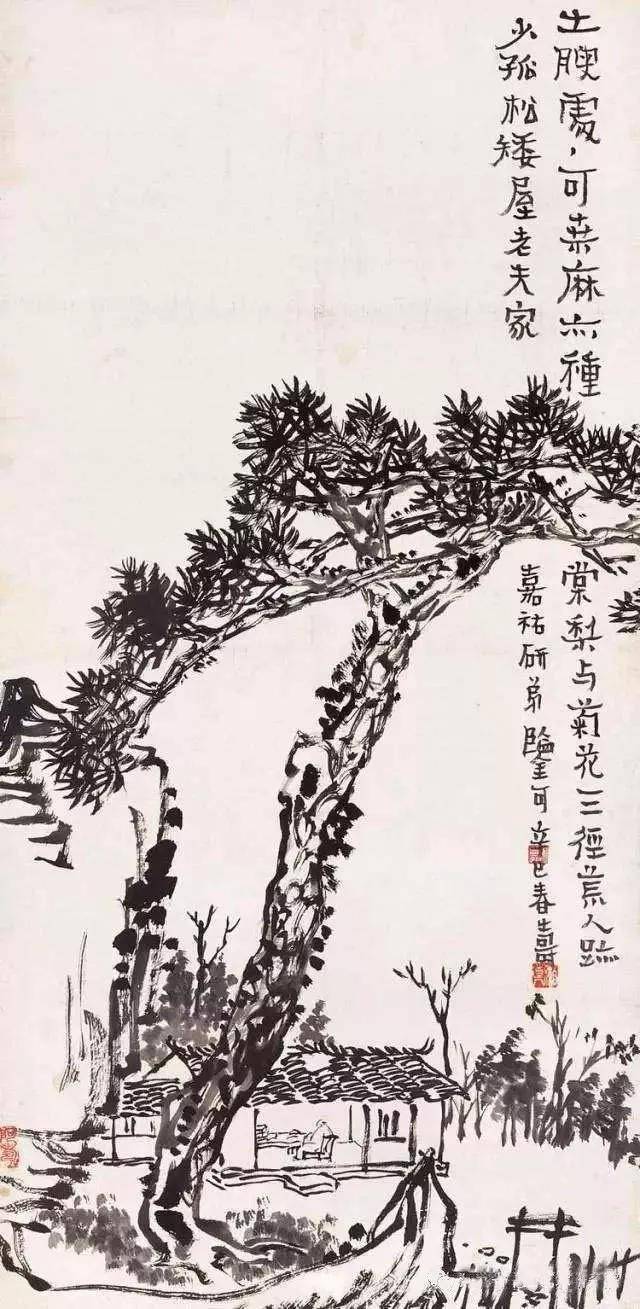 土腴處、可桒麻亦種棠梨与菊花三徑荒人跡
少孤松矮屋老夫家
嘉祐研弟鑒可辛巳春壽